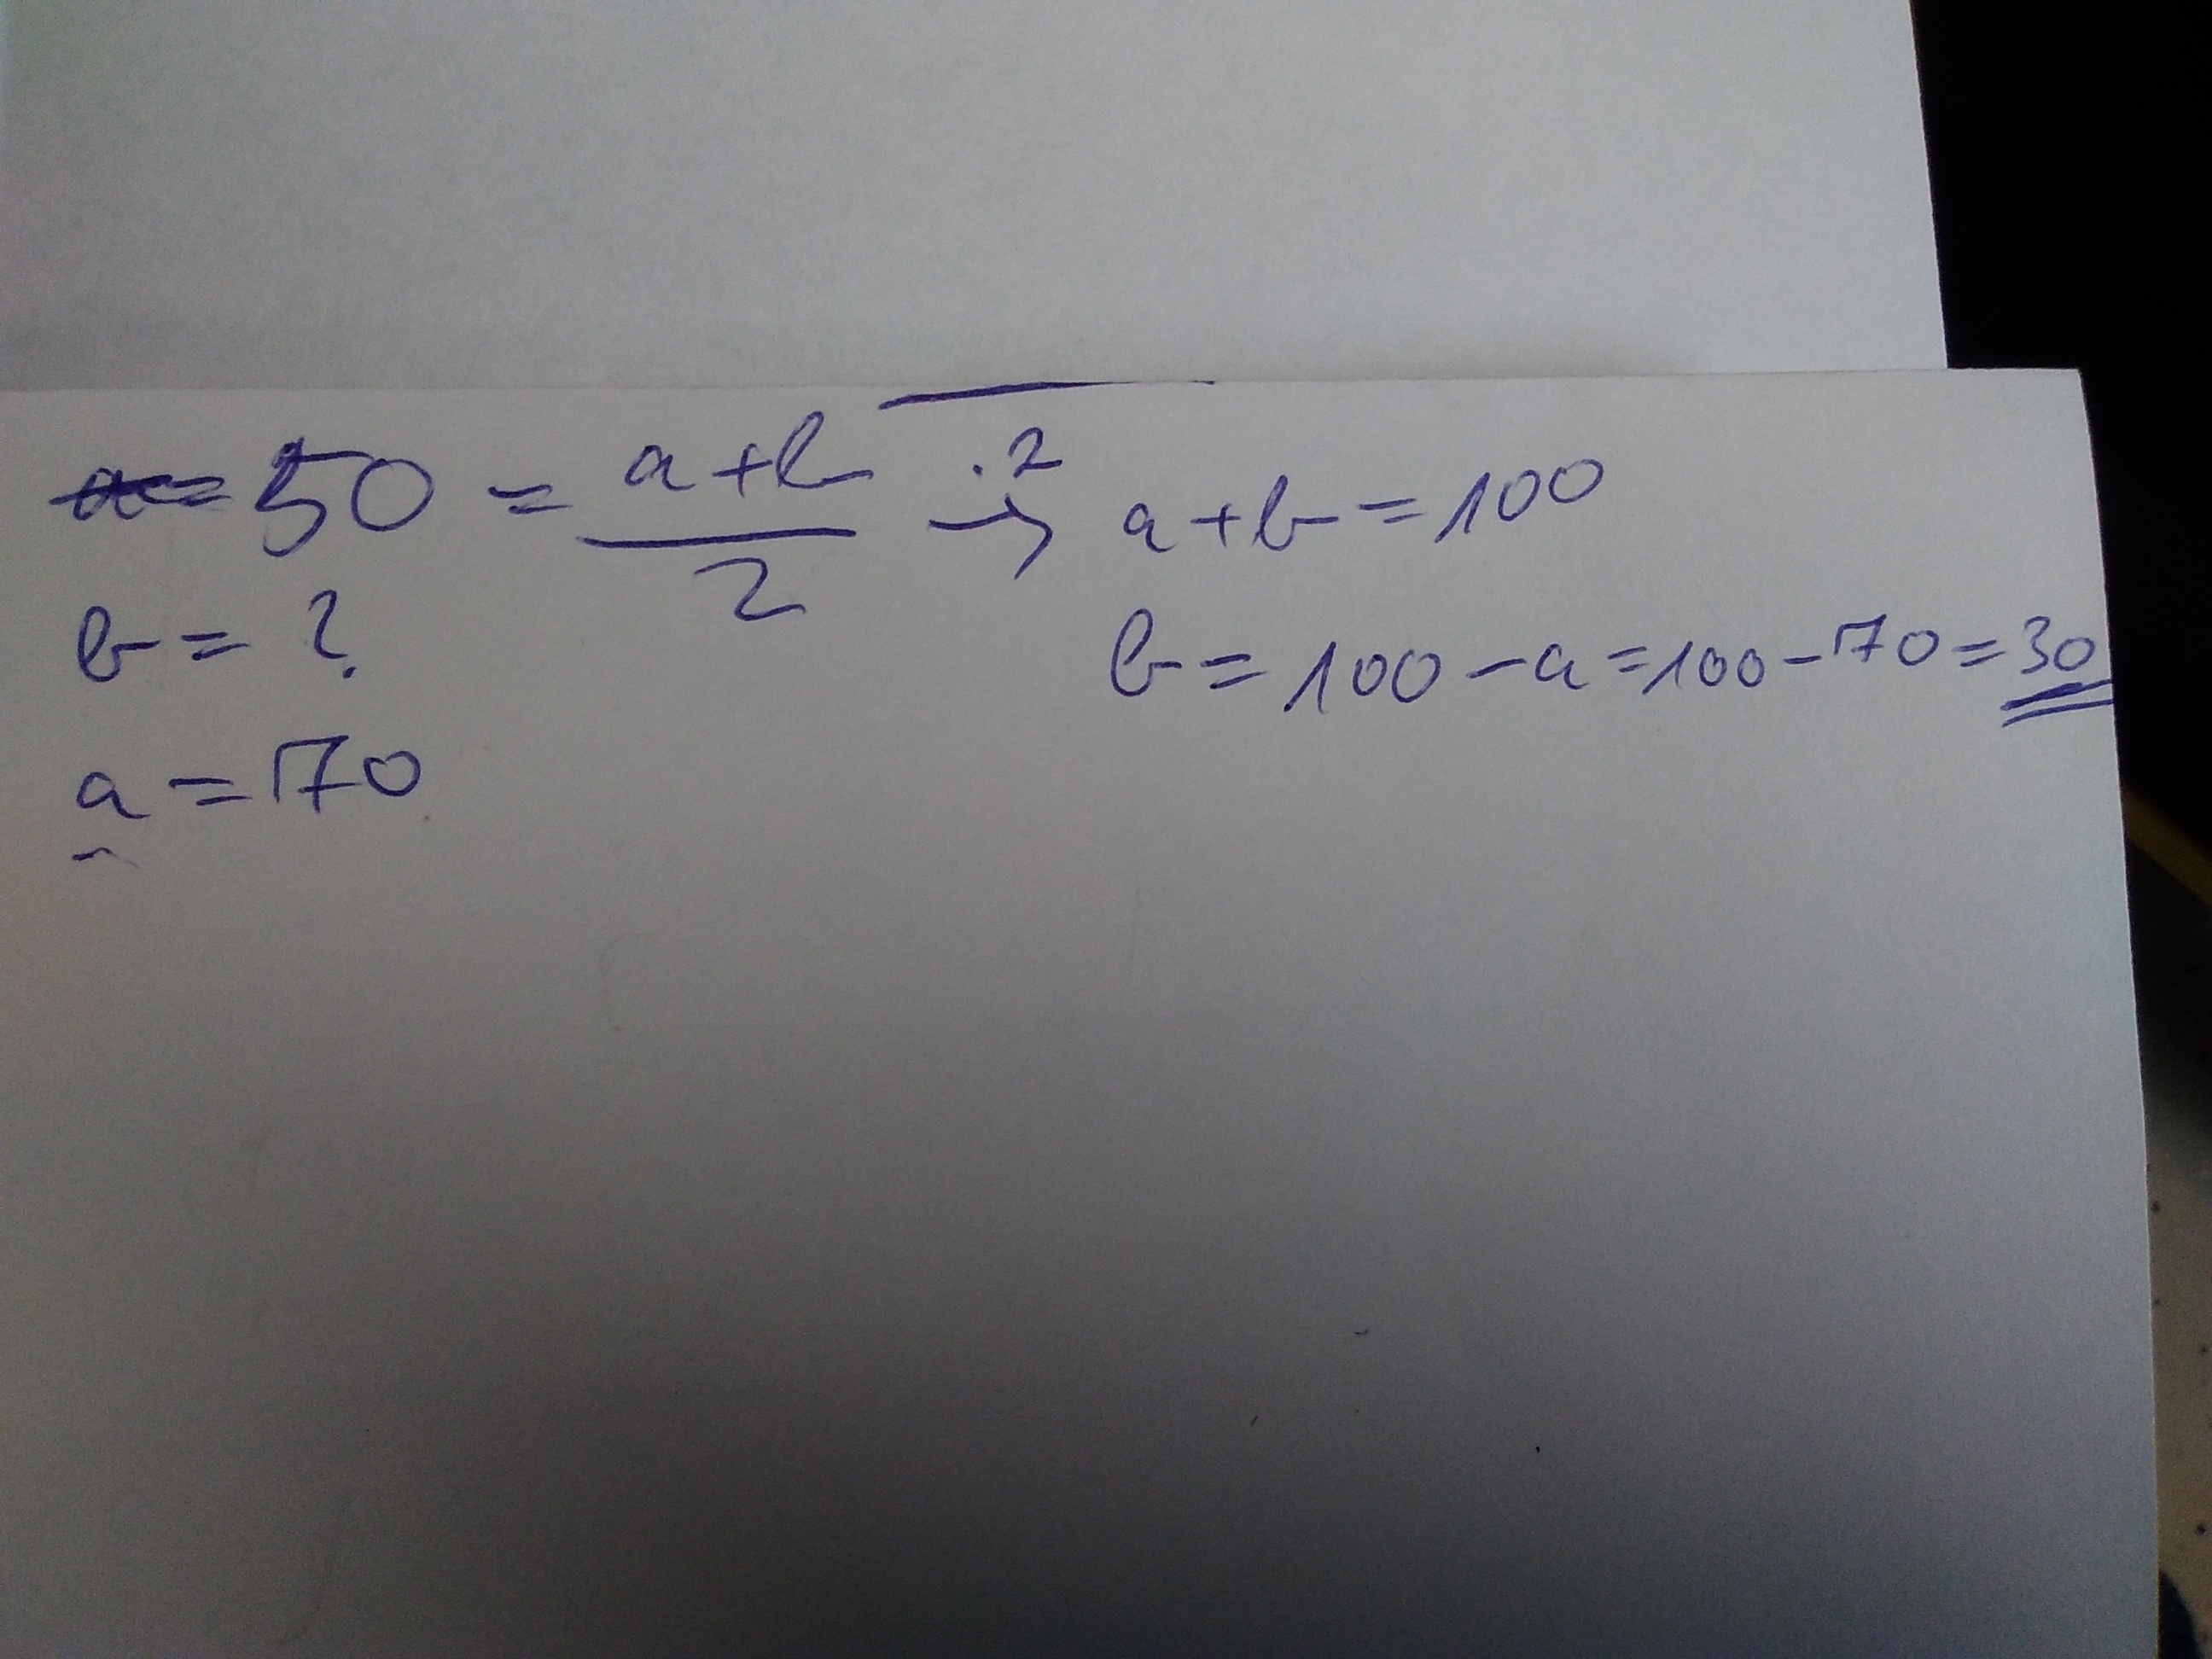 50 = a+b / 2 →·2 a+b=100
b = ? b = 100 - a = 100 - 70 = 30
a = 70